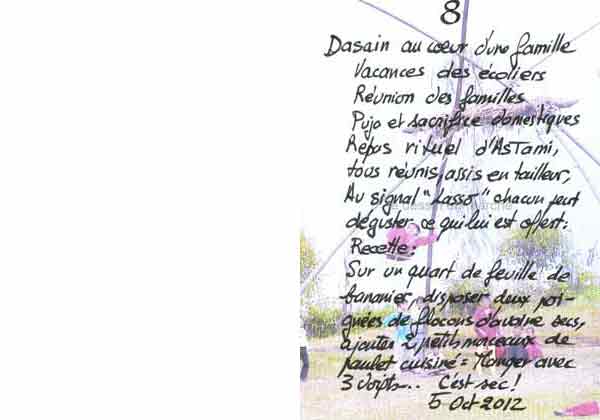 8
Dasain au cœur d'une famille
Vacances des écoliers
Réunion des familles
Pujo et sacrifice domestiques
Repas rituel d'AsTami,
tous réunis, assis en tailleur,
Au signal "Lasso" chacun peut
déguster ce qui lui est offert:
Recette:
Sur un quart de feuille de
bananier, disposer deux poi-
gnées de flocons d'avoine secs,
ajouter 2 petits morceaux de
poulet cuisiné = Manger avec
3 doigts... C'est sec!
5 Oct 2012